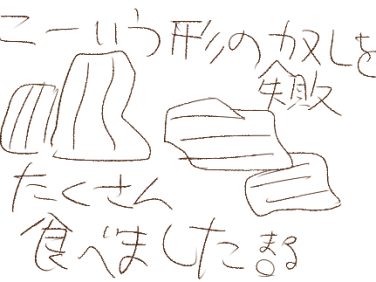 こーいう形の奴しを
失敗
たくさん
食べました まる